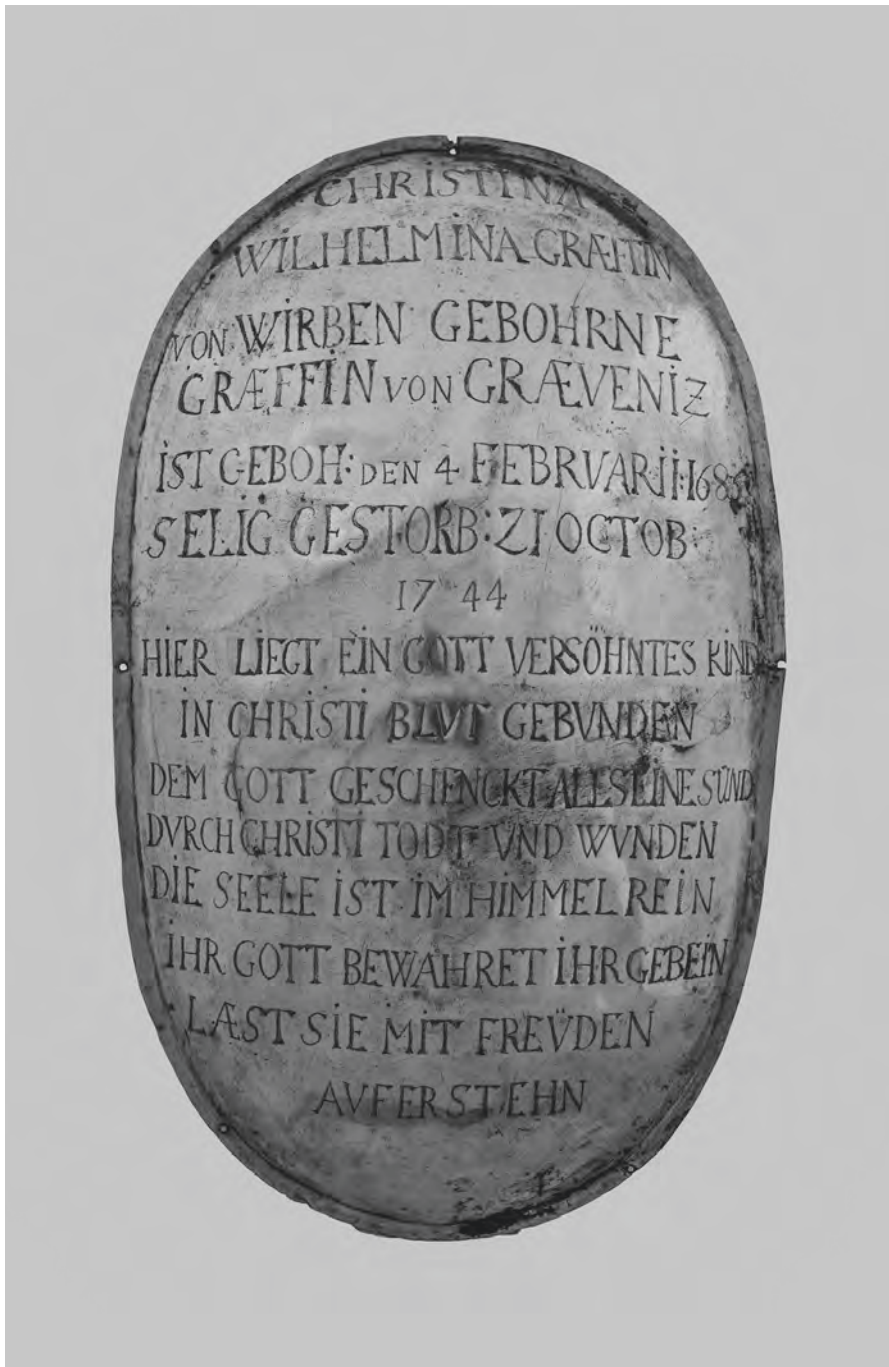 CHRISTINA
WILHELMINA GRÆFFIN
VON WIRBEN GEBOHRNE
GRÆFFIN VON GRÆVENIZ
IST GEBOH: DEN 4 FEBRVARII: 1685
SELIG GESTORB: ZI OCTOB:
1744
HIER LIEGT EIN GOTT VERSÖHNTES KIND
IN CHRISTI BLVT GEBVNDEN
DEM GOTT GESCHENCKT ALL SEINE SÜND
DVRCH CHRISTI TODT VND WVNDEN
DIE SEELE IST IM HIMMEL REIN
IHR GOTT BEWAHRET IHR GEBEIN
LÆST SIE MIT FREÜDEN
AVFERSTEHN